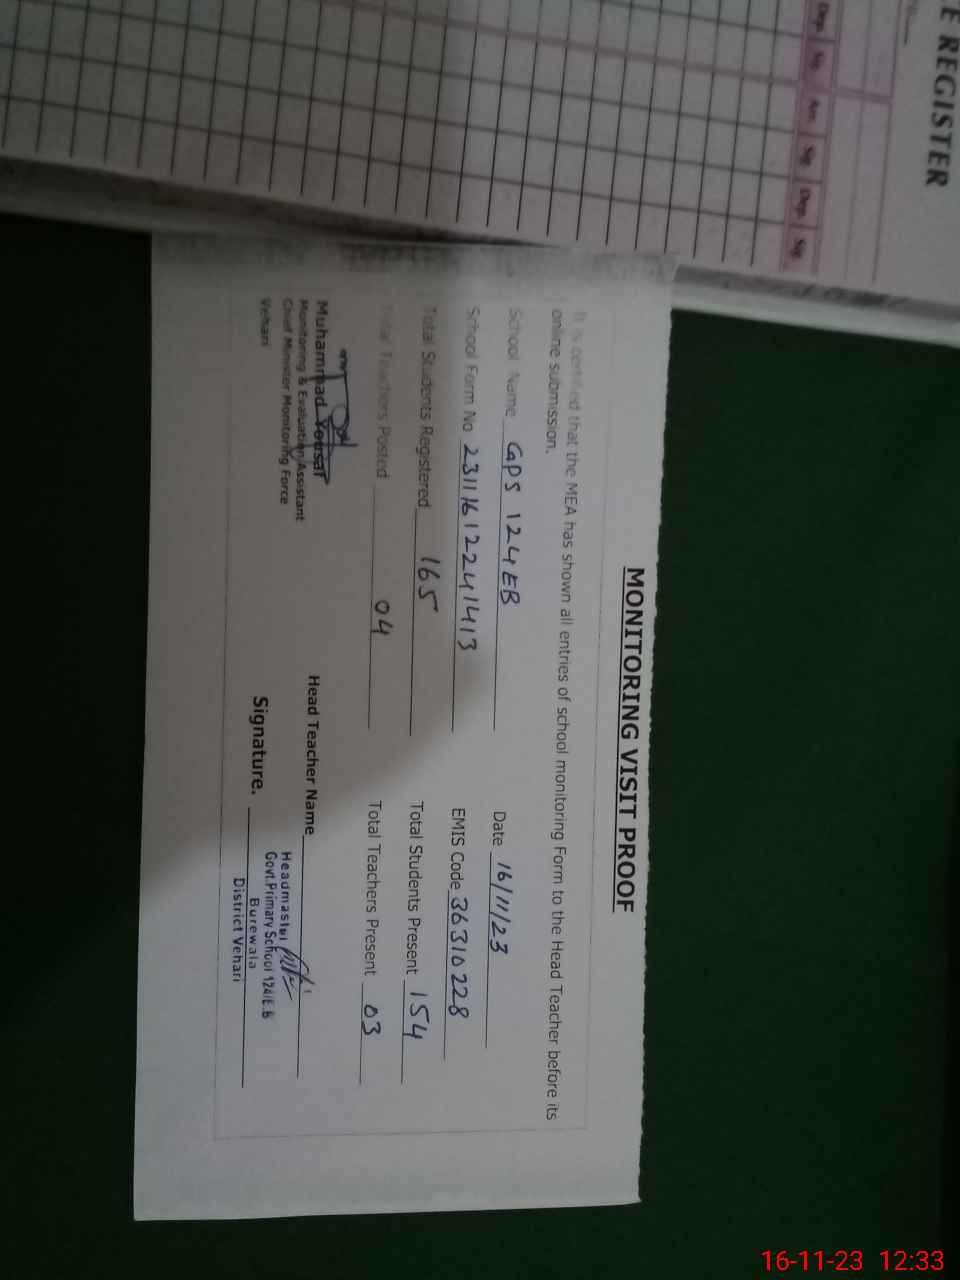 E REGISTER
Dep. Sig. Arr. Sig. Dep. Sig.
MONITORING VISIT PROOF
It is certified that the MEA has shown all entries of school monitoring Form to the Head Teacher before its
online submission.
School Name GPS 124EB Date 16/11/23
School Form No 23111612241413 EMIS Code 36310228
Total Students Registered 165 Total Students Present 154
Total Teachers Posted 04 Total Teachers Present 03
Muhammad Yousaf
Monitoring & Evaluation Assistant
Chief Minister Monitoring Force
Vehari
Head Teacher Name
Signature.
Headmaster
Govt.Primary School 124/E.B
Burewala
District Vehari
16-11-23 12:33